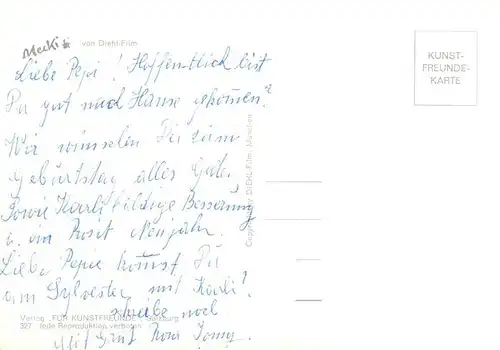 Mecki von Diehl-Film
Liebe Pepi! Hoffentlich bist
Du gut nach Hause gekommen?
Wir wünschen Dir zum
Geburtstag alles Gute,
sowie Karli baldige Besserung
u. ein Prosit Neujahr.
Liebe Pepie kommst Du
am Sylvester mit Karli?
schreibe noch
Mit Gruß
Verlag „FÜR KUNSTFREUNDE"
327 Jede Reproduktion verboten
Copyright by DIEHL-Film, München
KUNST-
FREUNDE-
KARTE